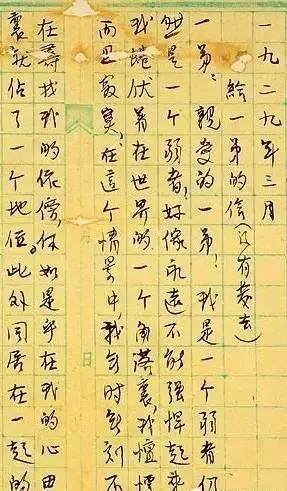 一九二九年三月
給一弟的信(没有 去)
一弟,親愛的一弟!我是一个弱者仍
然是一个弱者,好像永远不能強悍起來
我蜷伏着在世界的一个角落裏,我
而且 寞,在這个情景中,我無时無刻不
在尋找我的依傍,你如是乎在我的心田
裏就佔了一个地位。此外同居在一起的